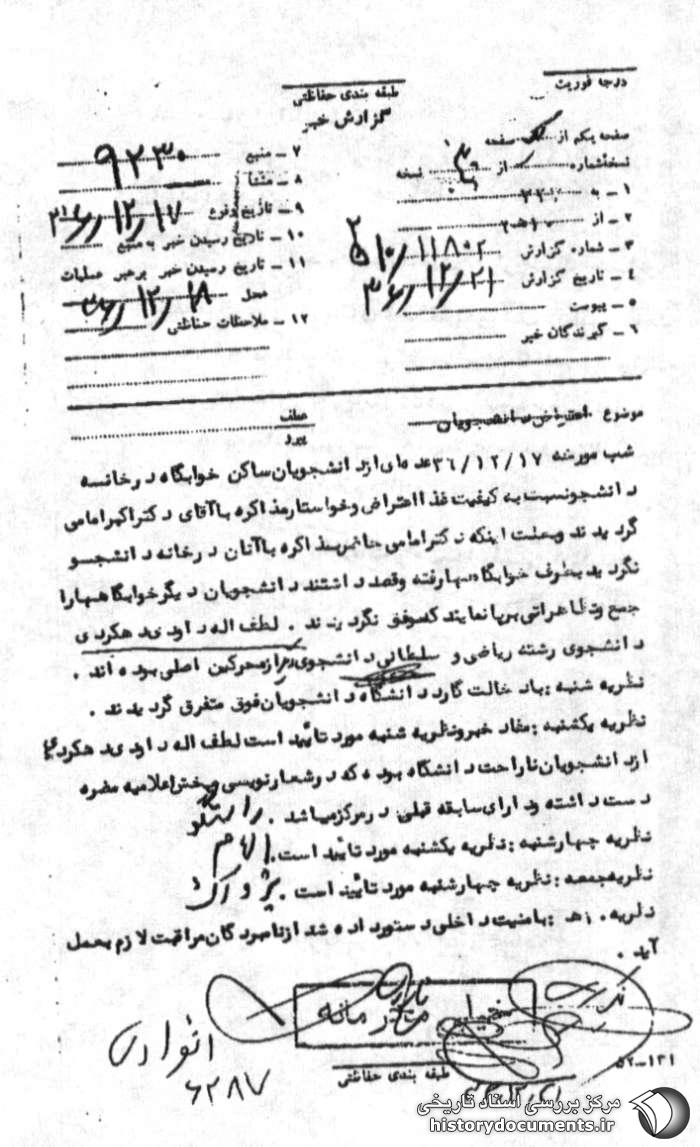 درجه فوریت
طبقه بندی حفاظتی
گزارش خبر
صفحه یکم از یک صفحه
نسخه شماره از نسخه
۱ - به
۲ - از
۳ - شماره گزارش ۱۱۸۰۲
۴ - تاریخ گزارش ۳۶/۱۲/۲۱
۵ - پیوست
۶ - گیرندگان خبر
۷ - منبع ۹۲۳۰
۸ - منشأ
۹ - تاریخ وقوع ۳۶/۱۲/۱۷
۱۰ - تاریخ رسیدن خبر به منبع
۱۱ - تاریخ رسیدن خبر برهبر عملیات
محل ۱۲/۱۸
۱۲ - ملاحظات حفاظتی
موضوع اعتراض دانشجویان
عطف
پیرو
شب مورخه ۳۶/۱۲/۱۷ عده ای از دانشجویان ساکن خوابگاه در خانه
دانشجو نسبت به کیفیت غذا اعتراض و خواستار مذاکره با آقای دکتر اکبر امامی
گردیدند و بعلت اینکه دکتر امامی حاضر بمذاکره با آنان در خانه دانشجو
نگردید بطرف خوابگاهها رفته و قصد داشتند دانشجویان دیگر خوابگاهها را
جمع و تظاهراتی برپا نمایند که موفق نگردیدند . لطف اله داودی دهکردی
دانشجوی رشته ریاضی و سلطانی دانشجوی از محرکین اصلی بوده اند .
نظریه شنبه : با دخالت گارد دانشگاه دانشجویان فوق متفرق گردیدند .
نظریه یکشنبه : مفاد خبر و نظریه شنبه مورد تائید است لطف اله داودی دهکردی
از دانشجویان ناراحت دانشگاه بوده که در شعارنویسی و پخش اعلامیه مضره
دست داشته و دارای سابقه قبلی در مرکز میباشد . راستگو
نظریه چهارشنبه : نظریه یکشنبه مورد تائید است .
نظریه جمعه : نظریه چهارشنبه مورد تائید است . پژواک
نظریه . ; هـ : بامنیت داخلی دستور داده شد از نامبردگان مراقبت لازم بعمل
آید .
خیلی محرمانه
انواری
۶۲۸۷
طبقه بندی حفاظتی
۵۲-۱۲۱
مرکز بررسی اسناد تاریخی
historydocuments.ir